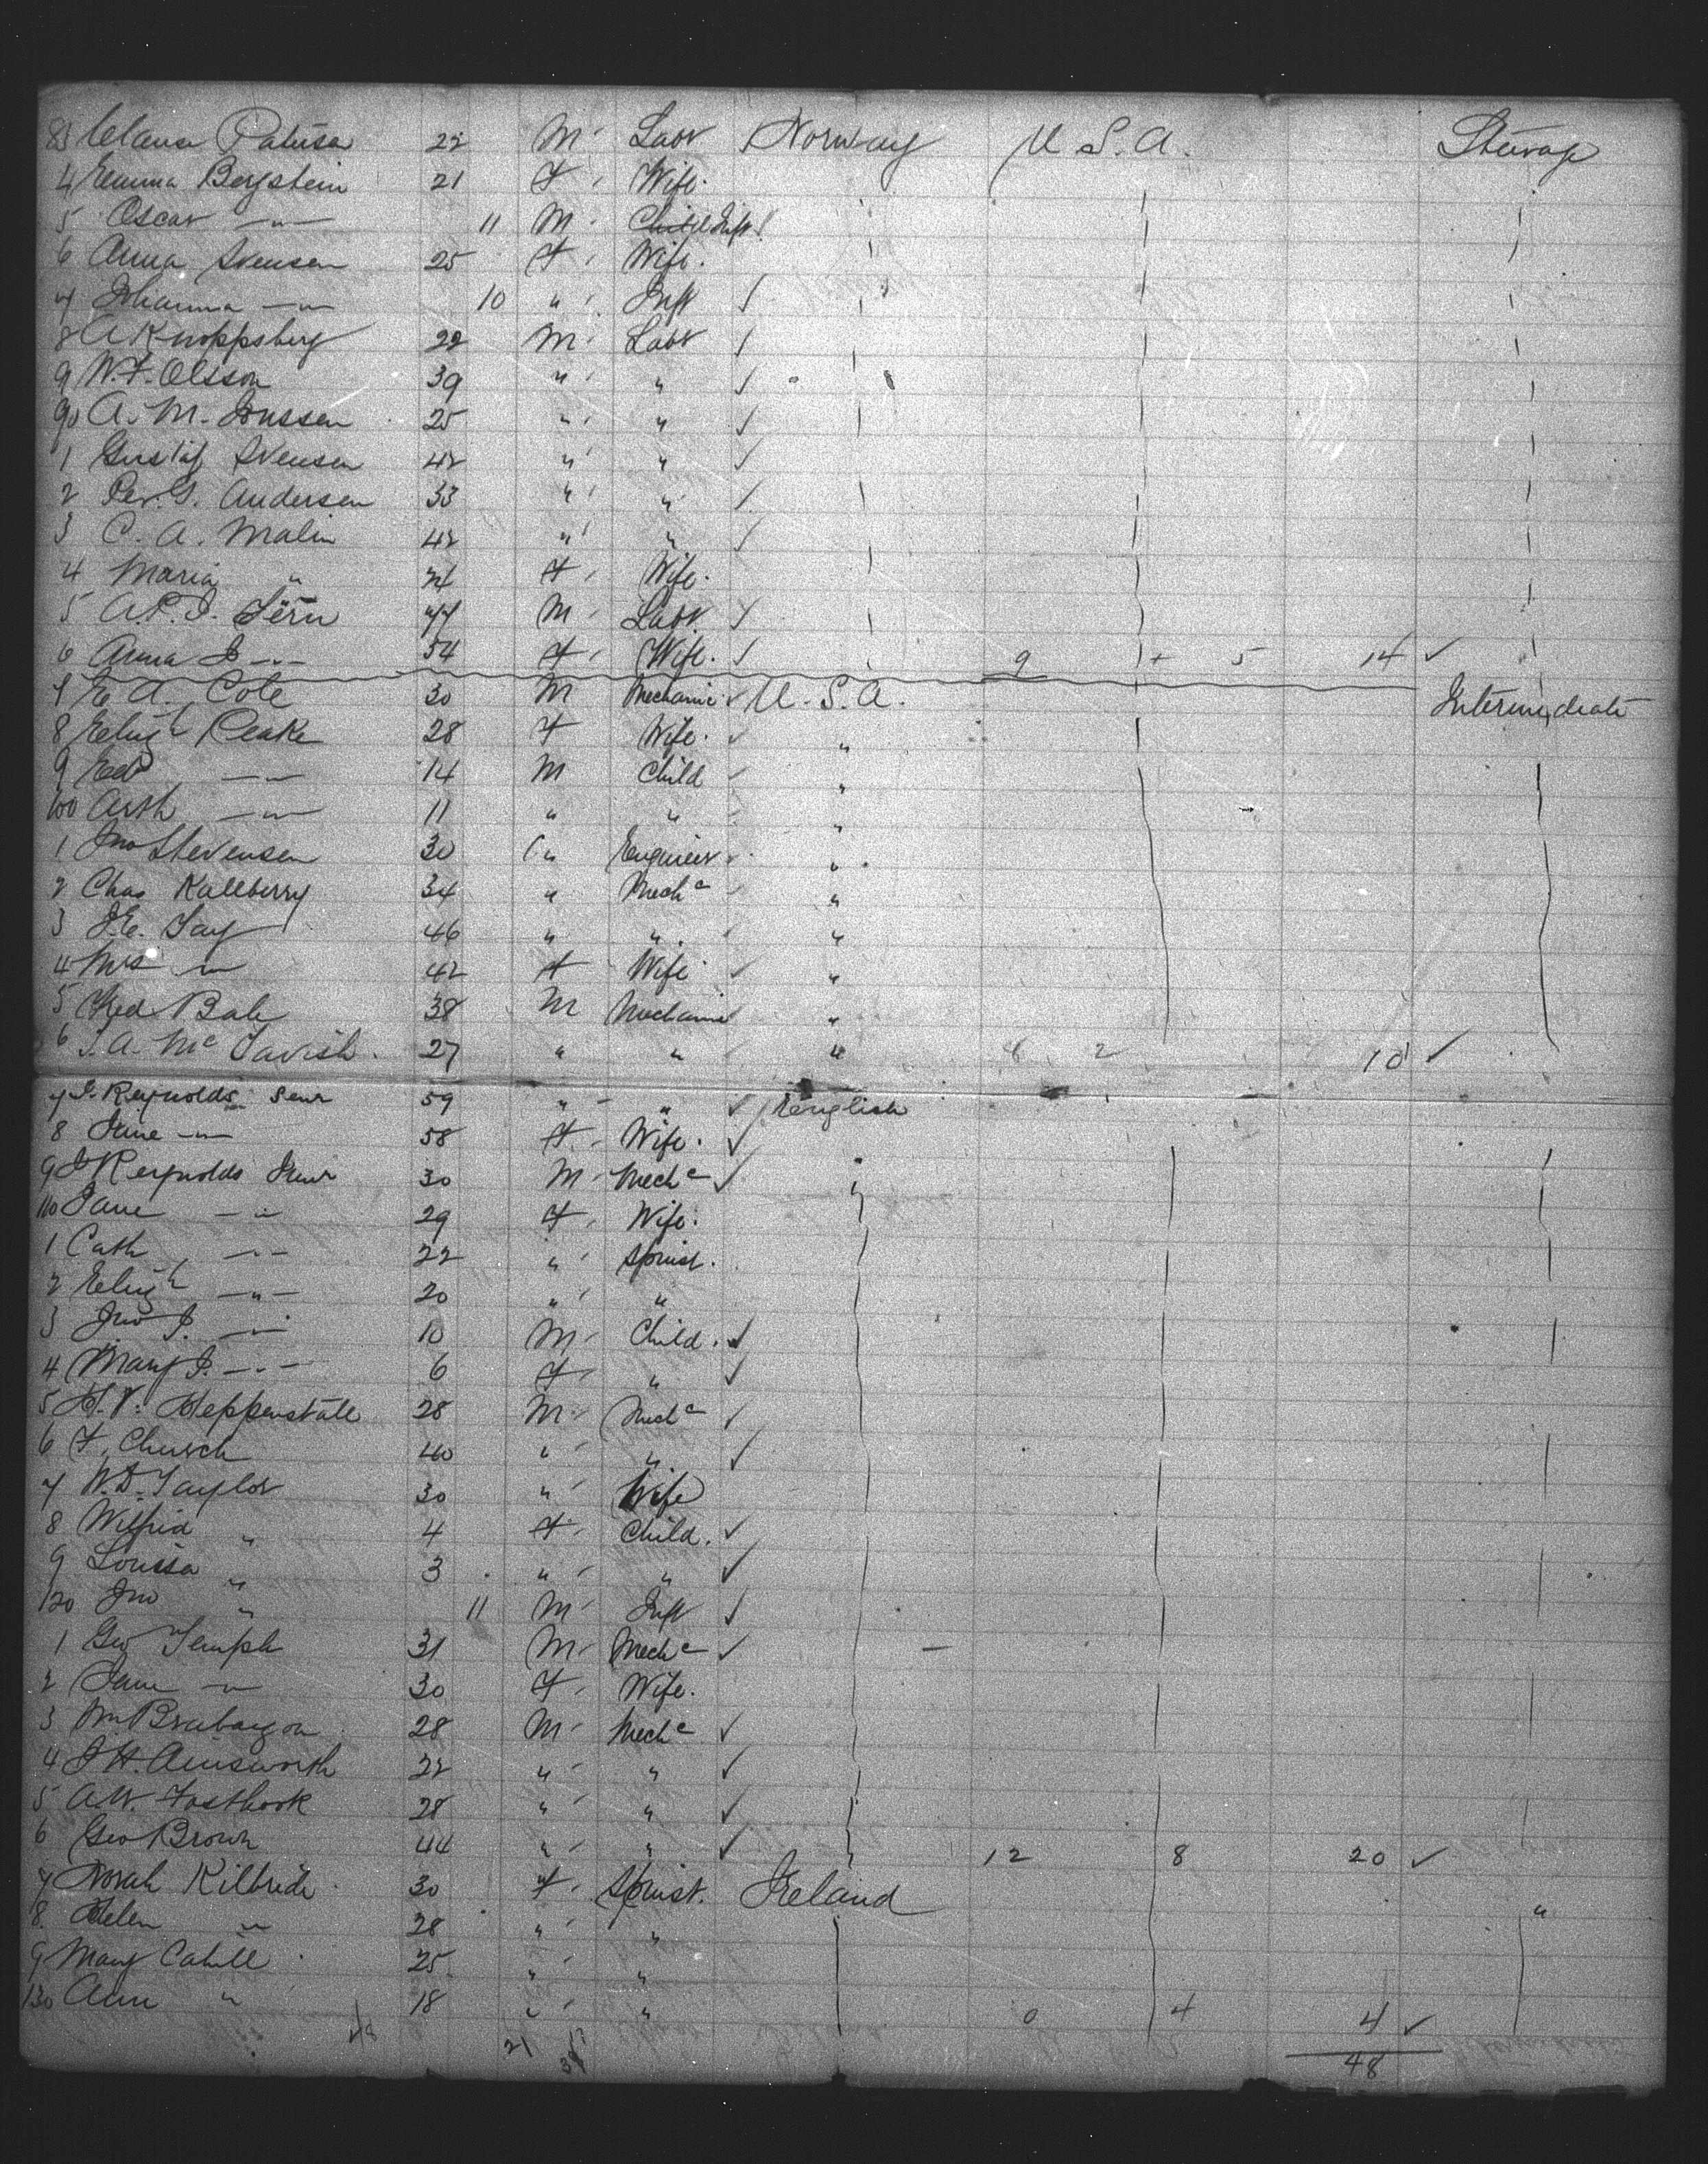 83 Clama Patersa 22 M Labr Norway U.S.A. Steerage
4 Emma Bergstein 21 F Wife.
5 Oscar —"— 11 M Child Inft
6 Anna Svensen 25 F Wife.
7 Johanna —"— 10 " Inft
8 A Knoppsberg 22 M Labr
9 N. F. Olsson 39 " "
90 A. M. Jonssen 25 " "
1 Gustaf Svensen 42 " "
2 Per. G. Andersen 33 " "
3 C. A. Malin 42 " "
4 Maria " 21 F Wife.
5 A. P. J. Fern 47 M Labr
6 Anna J —"— 54 F Wife. 9 + 5 14 ✓
7 E A. Cole 30 M Mechanic ✓ U.S.A. Intermediate
8 Elizth Peake 28 F Wife. ✓ "
9 Ed —"— 14 M Child ✓ "
100 Arth —"— 11 " " "
1 Jno Stevensen 30 " Engineer "
2 Chas Kallberry 34 " Mechc "
3 J. E. Tay 46 " " "
4 Mrs " 42 F Wife ✓ "
5 Fred Bale 38 M Mechanic "
6 J. A. McTavish. 27 " " " 8 2 10 ✓
7 J. Reynolds Senr 59 " " ✓ English
8 Jane —"— 58 F Wife. ✓
9 J Reynolds Junr 30 M Mechc ✓ "
110 Jane —"— 29 F Wife.
1 Cath —"— 22 " Spinst.
2 Elizth —"— 20 " "
3 Jno J. —"— 10 M Child. ✓
4 Mary J. —"— 6 F " ✓
5 H. V. Heppenstall 28 M Mechc ✓
6 F. Church 40 " " ✓
7 W. D. Taylor 30 " Wife
8 Wilfrid " 4 F Child. ✓
9 Louisa " 3 " " ✓
120 Jno " 11 M Inft ✓
1 Geo Temple 31 M Mechc ✓
2 Jane " 30 F Wife.
3 Wm Brabazon 28 M Mechc ✓
4 J. H. Ainsworth 22 " " ✓
5 A. W. Fosthook 28 " " ✓
6 Geo Brown 44 " " ✓ 12 8 20 ✓
7 Norah Kilbride 30 F Spinst. Ireland "
8 Helen " 28 " "
9 Mary Cahill 25 " "
130 Ann " 18 " " 0 4 4 ✓
48 21
48